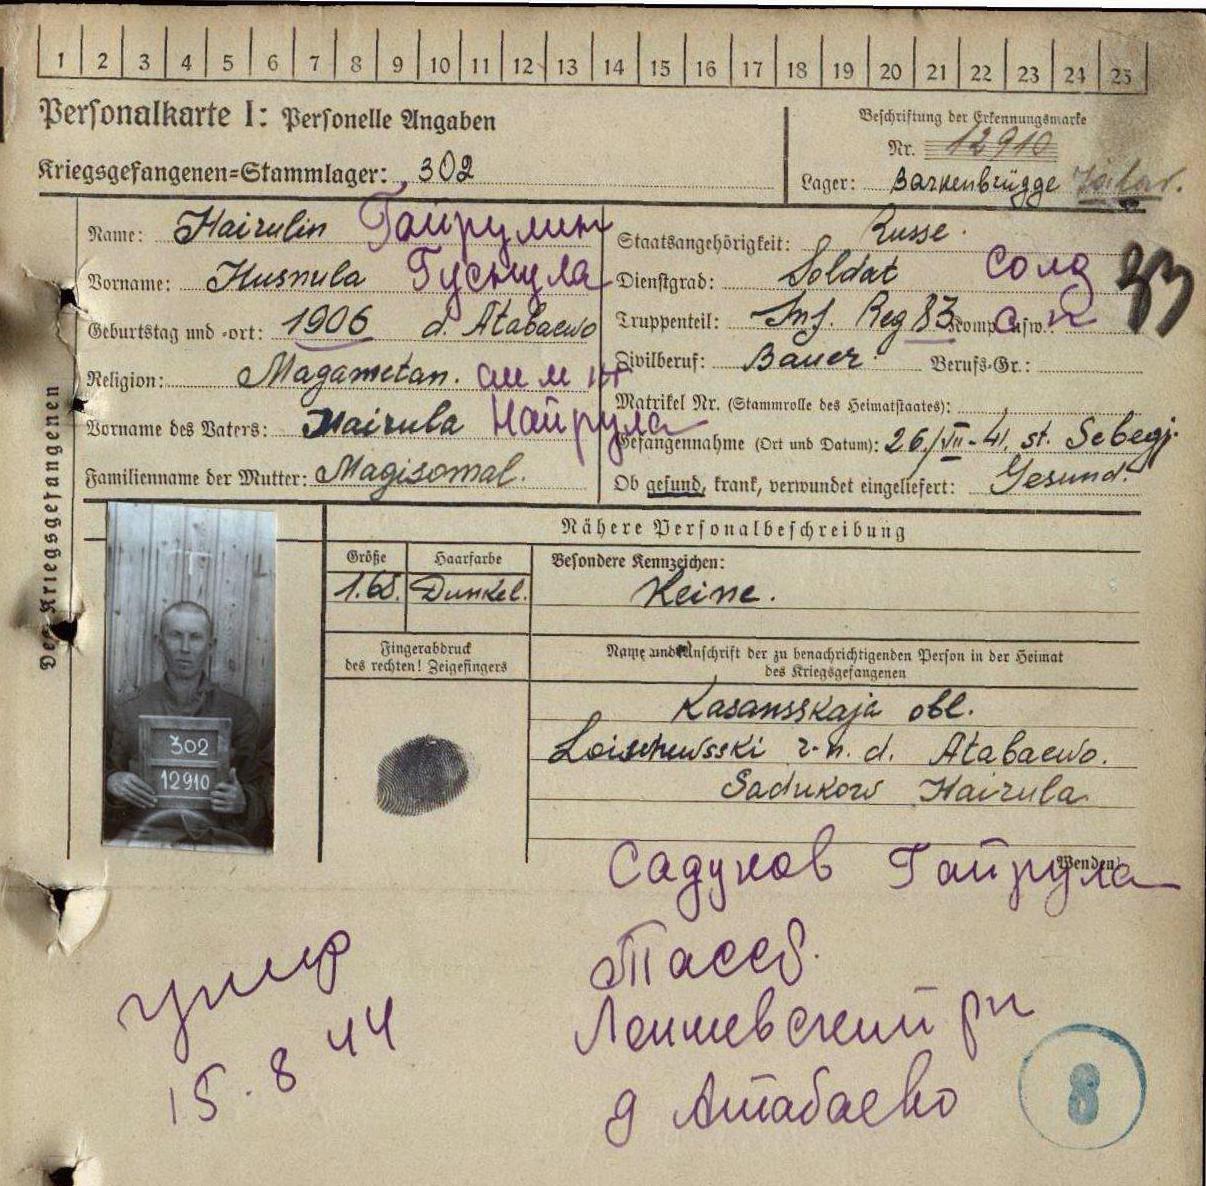 1 2 3 4 5 6 7 8 9 10 11 12 13 14 15 16 17 18 19 20 21 22 23 24 25
Personalkarte I: Personelle Angaben
Beschriftung der Erkennungsmarke
Nr. 12910
Kriegsgefangenen=Stammlager: 302
Lager: Barkenbrügge
Des Kriegsgefangenen
Name: Hairulin Гайрулин
Staatsangehörigkeit: Russe.
Vorname: Husnula Гуснула
Dienstgrad: Soldat солд
33
Geburtstag und -ort: 1906 d. Atabaewo
Truppenteil: Inf. Reg 83 Komp. usw. с. п
Religion: Magametan.
Zivilberuf: Bauer. Berufs-Gr.:
Matrikel Nr. (Stammrolle des Heimatstaates):
Vorname des Vaters: Hairula Найрула
Gefangennahme (Ort und Datum): 26/VII-41, st. Sebegj.
Familienname der Mutter: Magisomal.
Ob gesund, krank, verwundet eingeliefert: Gesund.
Nähere Personalbeschreibung
Größe Haarfarbe Besondere Kennzeichen:
1.68. Dunkel. Keine.
Fingerabdruck
des rechten! Zeigefingers
Name und Anschrift der zu benachrichtigenden Person in der Heimat
des Kriegsgefangenen
302
12910
Kasansskaja obl.
Loischewsski r-n. d. Atabaewo.
Sadukow Hairula
Wenden!
Садуков Гайрула
Тассб.
Лаишевский рн
д Атабаево
умер
15.8 44
8